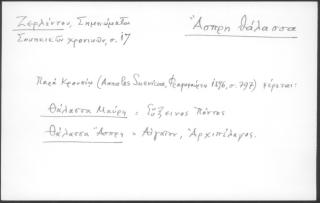 Ζερλέντου, Σημειώματα
Σουηκικῶν χρονικῶν, σ. 17
Ἄσπρη θάλασσα
Παρὰ Κρουσίῳ (Annales Suevicae, Φραγκφούρτη 1596, σ. 797) φέρεται:
Θάλασσα Μαύρη = Εὔξεινος Πόντος
Θάλασσα Ἄσπρη = Αἰγαῖον, Ἀρχιπέλαγος.